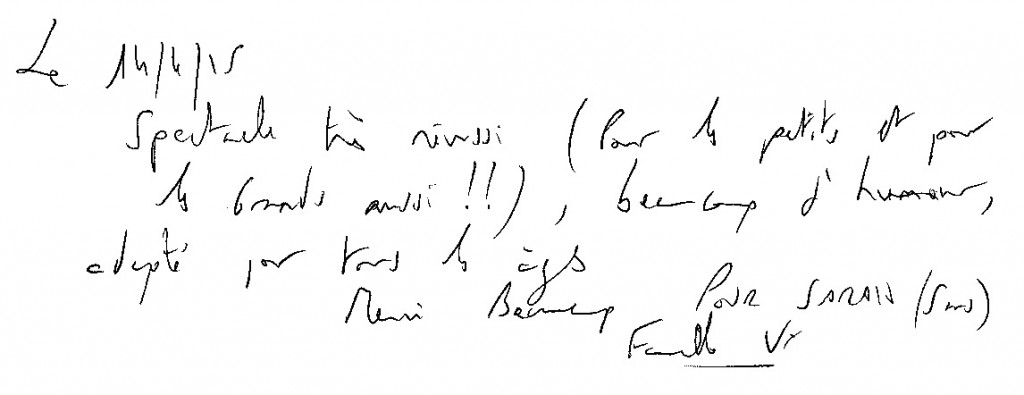 Le 14/4/15
Spectacle très réussi (Pour les petits et pour
les Grands aussi !!), beaucoup d'humour,
adapté pour tous les âges
Merci Beaucoup POUR SARAH (5 ans)
Famille